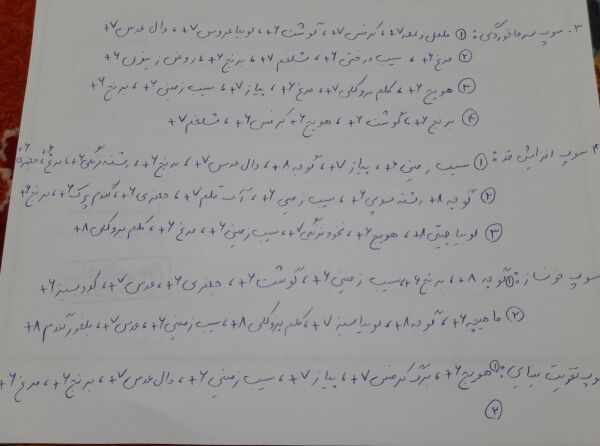 ۳. سوپ سرماخوردگی: ① فلفل دلمه +۷، کرفس +۷، گوشت +۶، لوبیا عروس +۷، دال عدس +۷
② مرغ +۶، سیب درختی +۶، شلغم +۷، برنج +۶، روغن زیتون +۶
③ هویج +۶، کلم بروکلی +۷، مرغ +۶، پیاز +۷، سیب زمینی +۶، برنج +۶
④ برنج +۶، گوشت +۶، هویج +۶، کرفس +۶، شلغم +۷
۴. سوپ افزایش قد: ① سیب زمینی +۶، پیاز +۷، گوجه +۸، دال عدس +۷، برنج +۶، رشته فرنگی +۶، مرغ +۶، جعفری +۶
② گوجه +۸، رشته سوپی +۶، سیب زمینی +۶، آب قلم +۷، جعفری +۶، گندم پرک +۶، برنج +۶
③ لوبیا چیتی +۸، هویج +۶، نخود فرنگی +۷، سیب زمینی +۶، مرغ +۶، کلم بروکلی +۸
سوپ خونساز: ① گوجه +۸، برنج +۶، سیب زمینی +۶، گوشت +۶، جعفری +۶، عدس +۷، کدو سبز +۶
② ماهیچه +۶، گوجه +۸، لوبیا سبز +۷، کلم بروکلی +۸، سیب زمینی +۶، عدس +۷، بلغور گندم +۸
سوپ تقویت بینایی: ① هویج +۶، برگ کرفس +۷، پیاز +۷، سیب زمینی +۶، دال عدس +۷، برنج +۶، مرغ +۶
②